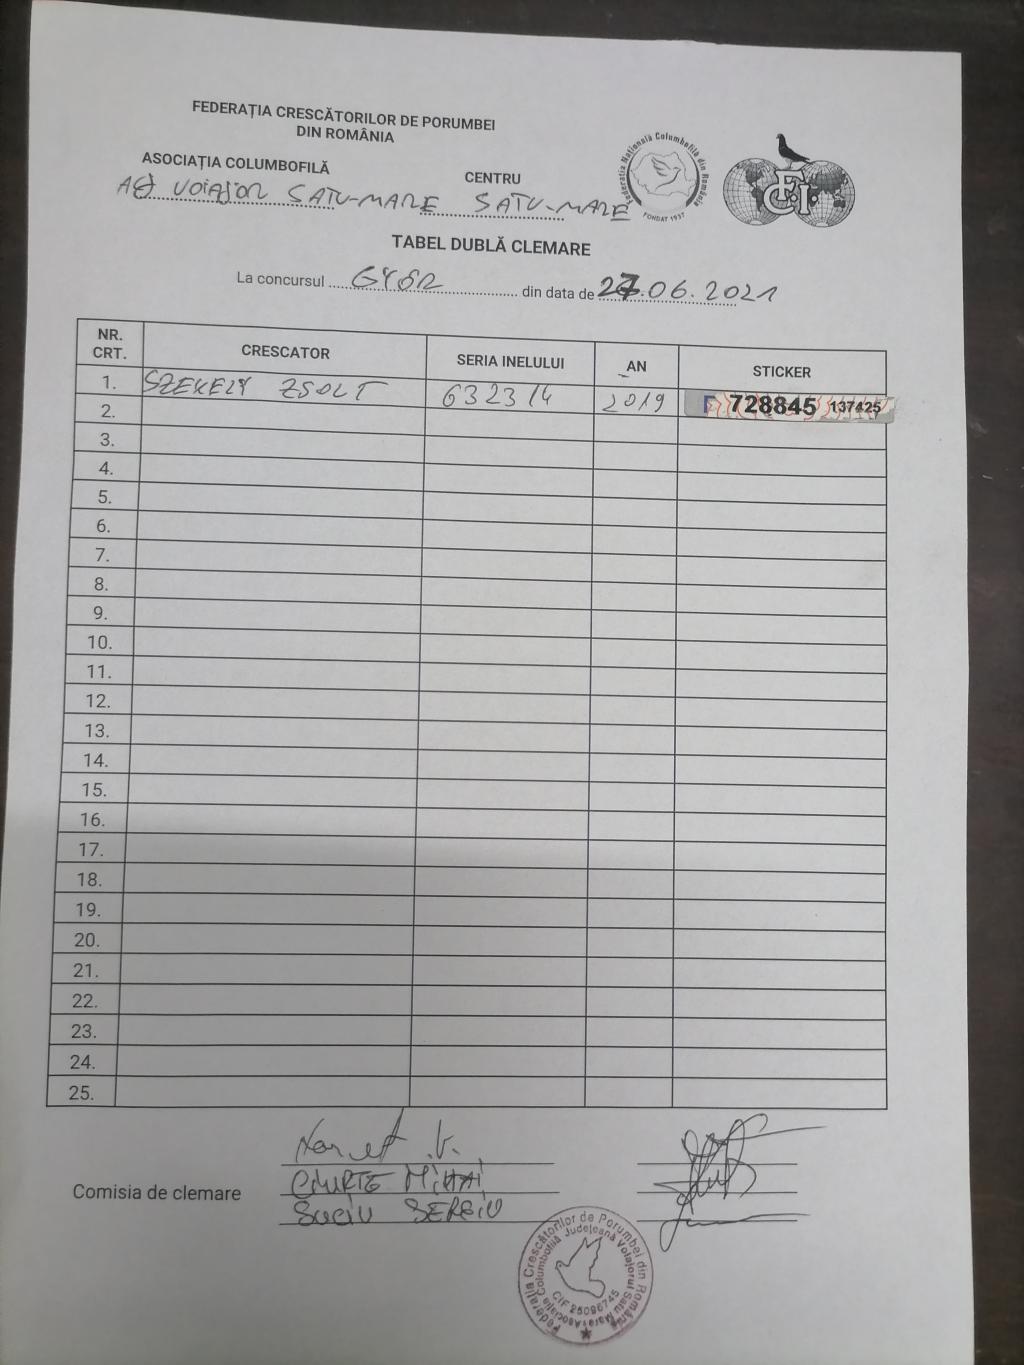 FEDERAȚIA CRESCĂTORILOR DE PORUMBEI
DIN ROMÂNIA
ASOCIAȚIA COLUMBOFILĂ
CENTRU
VOIAJOR SATU-MARE SATU-MARE
Federația Națională Columbofilă din România
FONDAT 1937
F.C.I.
TABEL DUBLĂ CLEMARE
La concursul GYŐR din data de 27.06.2021
NR. CRT. CRESCATOR SERIA INELULUI AN STICKER
1. SZEKELY ZSOLT 632314 2019 F 728845 137425
2.
3.
4.
5.
6.
7.
8.
9.
10.
11.
12.
13.
14.
15.
16.
17.
18.
19.
20.
21.
22.
23.
24.
25.
Comisia de clemare
MIHAI
SUCIU SERGIU
Federația Crescătorilor de Porumbei din România
Asociația Columbofilă Județeană Voiajorul Satu Mare
CIF 25096745